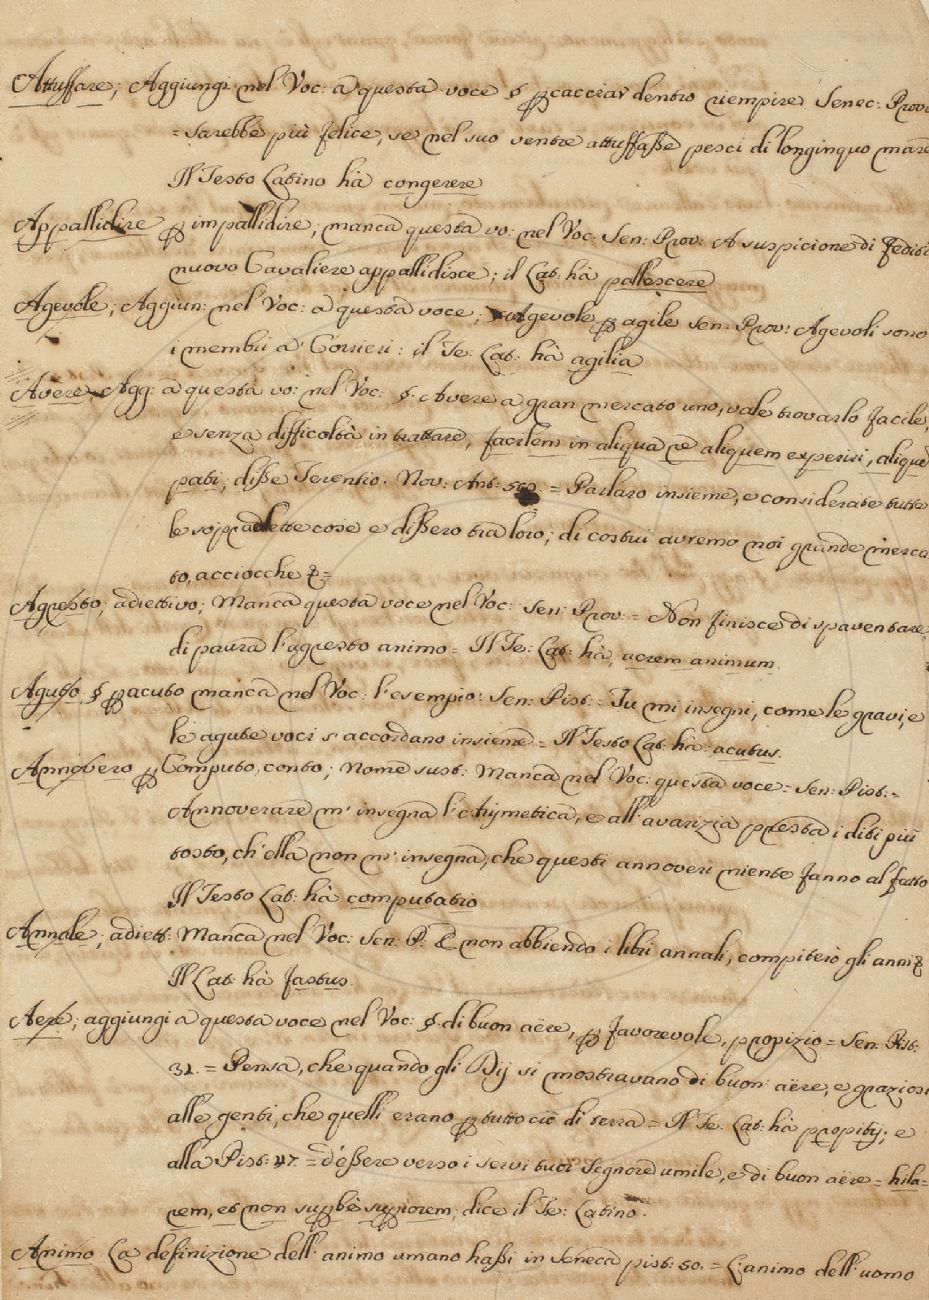 Attuffare; Aggiungi nel Voc: a questa voce § p cacciar dentro riempire Senec: Prov:
= sarebbe più felice, se nel suo ventre attuffaße pesci di longinquo mare
Il Testo Latino hà congerere
Appallidire p impallidire, manca questa vo: nel Voc: Sen: Prov: A suspicione di fedità
nuovo Cavaliere appallidisce; il Lat: hà pallescere
Agevole, Aggiun: nel Voc: a questa voce; Agevole p agile Sen: Prov: Agevoli sono
i membri a' Corrieri: il Te: Lat: hà agilia
Avere Agg: a questa vo: nel Voc: §. Avere a gran mercato uno, vale trovarlo facile,
e senza difficoltà in trattare, facilem in aliqua re aliquem experiri, alique
pati, diße Terentio. Nov: Ant: = Parlaro insieme, e considerate tutte
le sopradette cose e dißero tra loro; di costui avremo noi grande merca
to, acciocche &=
Agresto; adiettivo; Manca questa voce nel Voc: Sen: Prov: = Non finisce di spaventare
di paura l'agresto animo = Il Te: Lat: hà, acrem animum.
Aguto § p acuto manca nel Voc: l'esempio: Sen: Pist: = Tu mi insegni, come le gravi, e
le agute voci s'accordano insieme = Il Testo Lat: hà: acutus.
Annovero p Computo, conto; Nome sust: Manca nel Voc: questa voce = Sen: Pist: =
Annoverare m'insegna l'Arijmetica, e all'avarizia presta i diti più
tosto, ch'ella non m'insegna, che questi annoveri niente fanno al fatto
Il Testo Lat: hà computatio
Annale; adiett: Manca nel Voc: Sen: P: E non abbiendo i libri annali, compiterò gli anni &
Il Lat: hà fastus.
Aere; aggiungi a questa voce nel Voc: §. di buon aëre, p favorevole, propizio = Sen: Pist:
31. = Pensa, che quando gli Dij si mostravano di buon aëre, e graziosi
alle genti, che quelli erano p tutto ciò di terra = Il Te: Lat: hà propitij; e
alla Pist: 47. = d'eßere verso i servi tuoi Signore umile, e di buon aëre = hila=
rem, et non suppbè suppiorem, dice il Te: Latino.
Animo La definizione dell'animo umano haßi in Seneca pist: 50. = L'animo dell'uomo